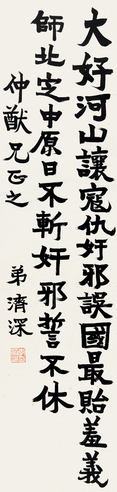 大好河山讓寇仇奸邪誤國最貽羞義
師北定中原日不斬奸邪誓不休
仲猷兄正之
弟濟深